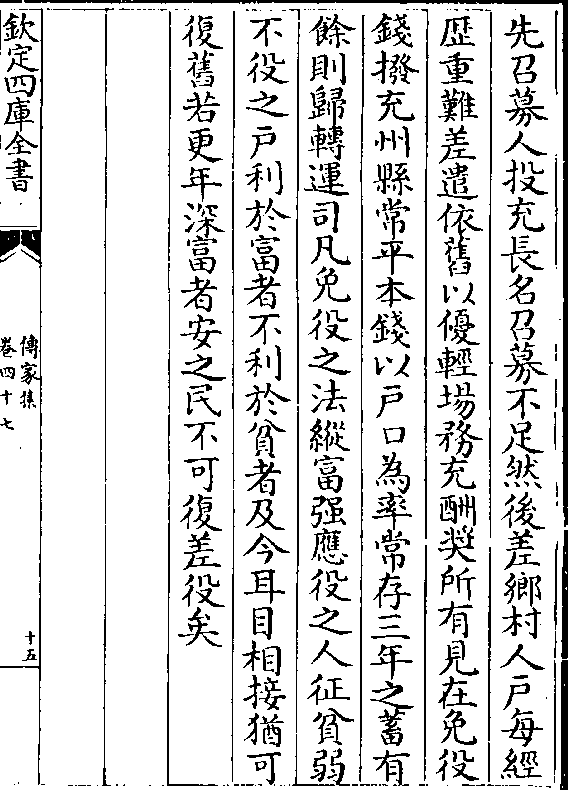 先召募人投充長名召募不足然後差鄉村人戶每經
歴重難差遣依舊以優輕場務充酬奨所有見在免役
錢撥充州縣常平本錢以戶口為率常存三年之蓄有
餘則歸轉運司凡免役之法縱富强應役之人征貧弱
不役之戶利於富者不利於貧者及今耳目相接猶可
復舊若更年深富者安之民不可復差役矣
欽定四庫全書
傳家集
卷四十七
十五